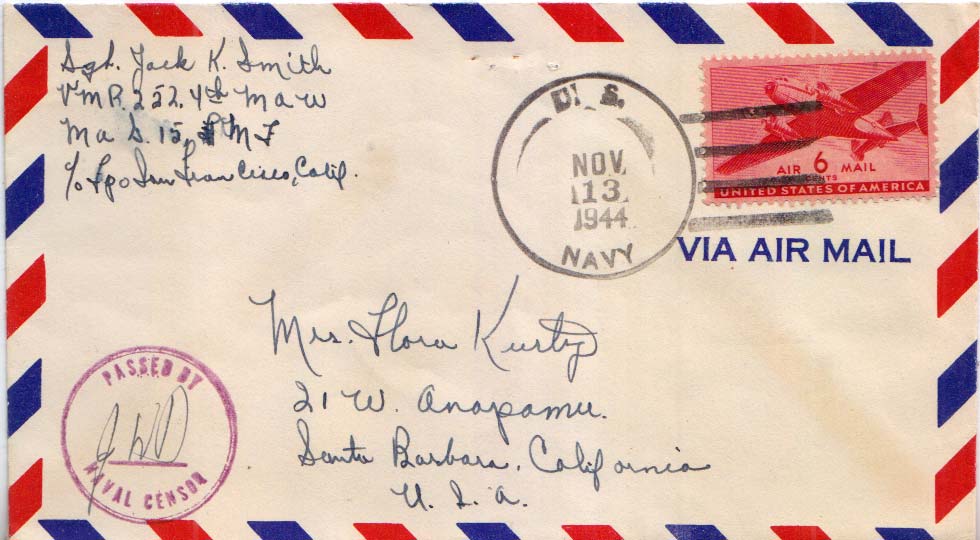 Sgt. Jack K. Smith
VMR. 252. 4th Maw
Ma S. 15, FMF
c/o Fpo San Francisco, Calif.
U. S.
NOV.
13
1944
NAVY
AIR 6 MAIL
CENTS
UNITED STATES OF AMERICA
VIA AIR MAIL
Mrs. Flora
21 W. Anapamu.
Santa Barbara, California
U. S. A.
PASSED BY
NAVAL CENSOR